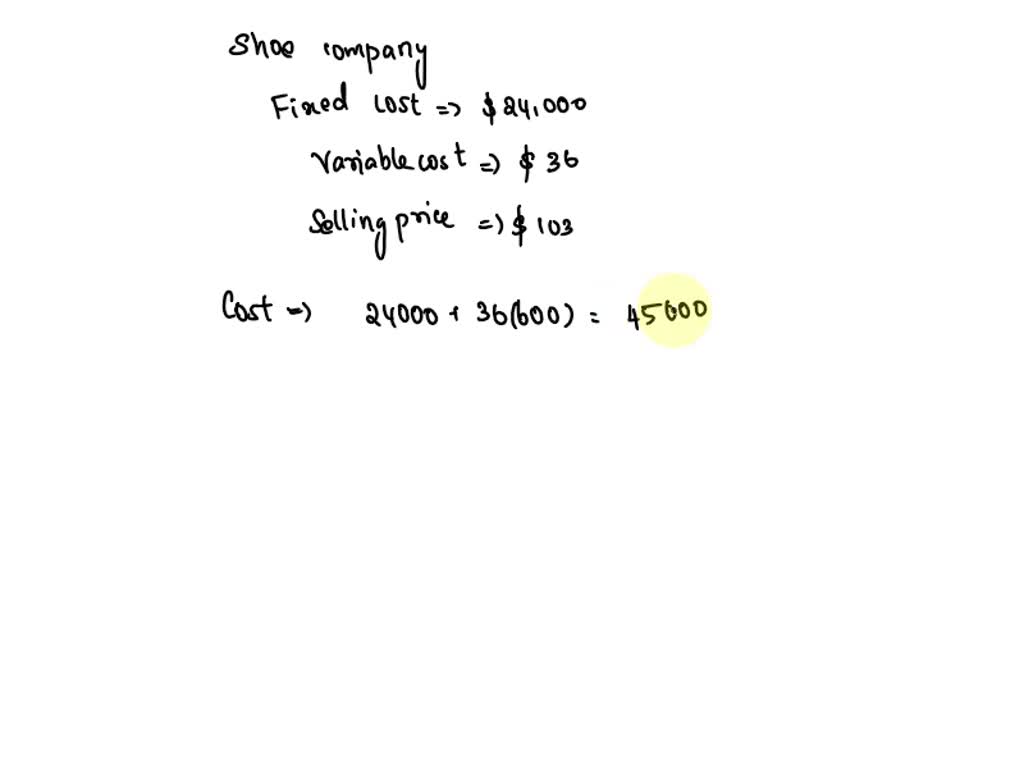 Shoe company
Fixed cost => $24,000
Variable cost => $ 36
Selling price => $ 103
Cost => 24000 + 36(600) = 45600